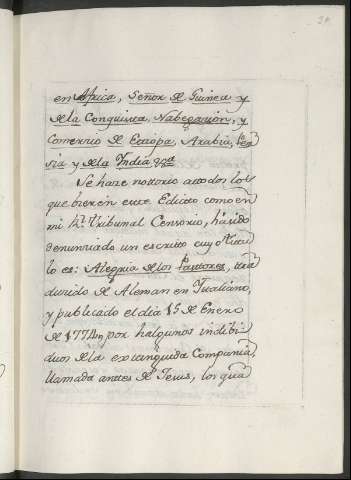 en Africa, Señor de Guinea y
de la Conquista, Nabegacion, y
Comercio de Etiopa, Arabia, Per
sia y de la India &ra
Se hace notorio a todos los
que bieren este Edicto como en
mi Rl. Tribunal Censorio, ha sido
denunciado un escrito cuyo titu
lo es: Alegria de los Pastores, tra
ducido de Aleman en Italiano,
y publicado el dia 15 de Enero
de 1774, por halgunos indibi
duos de la extinguida Compania,
llamada antes de Jesus, los qua